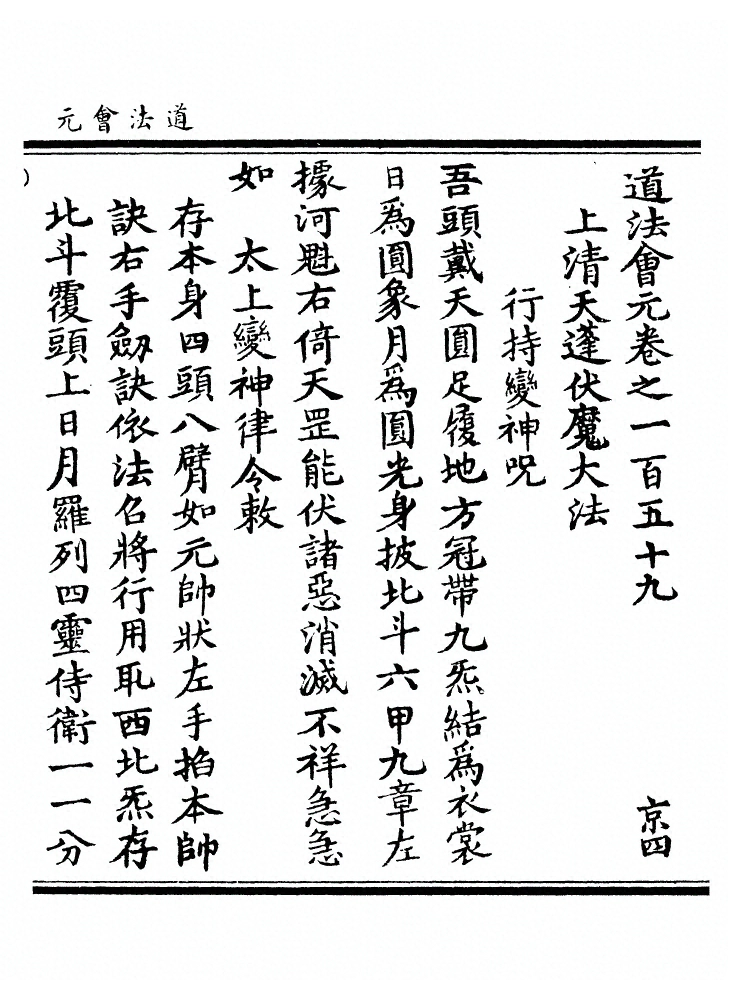 道法會元
道法會元卷之一百五十九 京四
上清天蓬伏魔大法
行持變神呪
吾頭戴天圓足履地方冠帶九炁結爲衣裳
日爲圓象月爲圓光身披北斗六甲九章左
據河魁右倚天罡能伏諸惡消滅不祥急急
如 太上變神律令敕
存本身四頭八臂如元帥狀左手掐本帥
訣右手劒訣依法召將行用取西北炁存
北斗覆頭上日月羅列四靈侍衛一一分